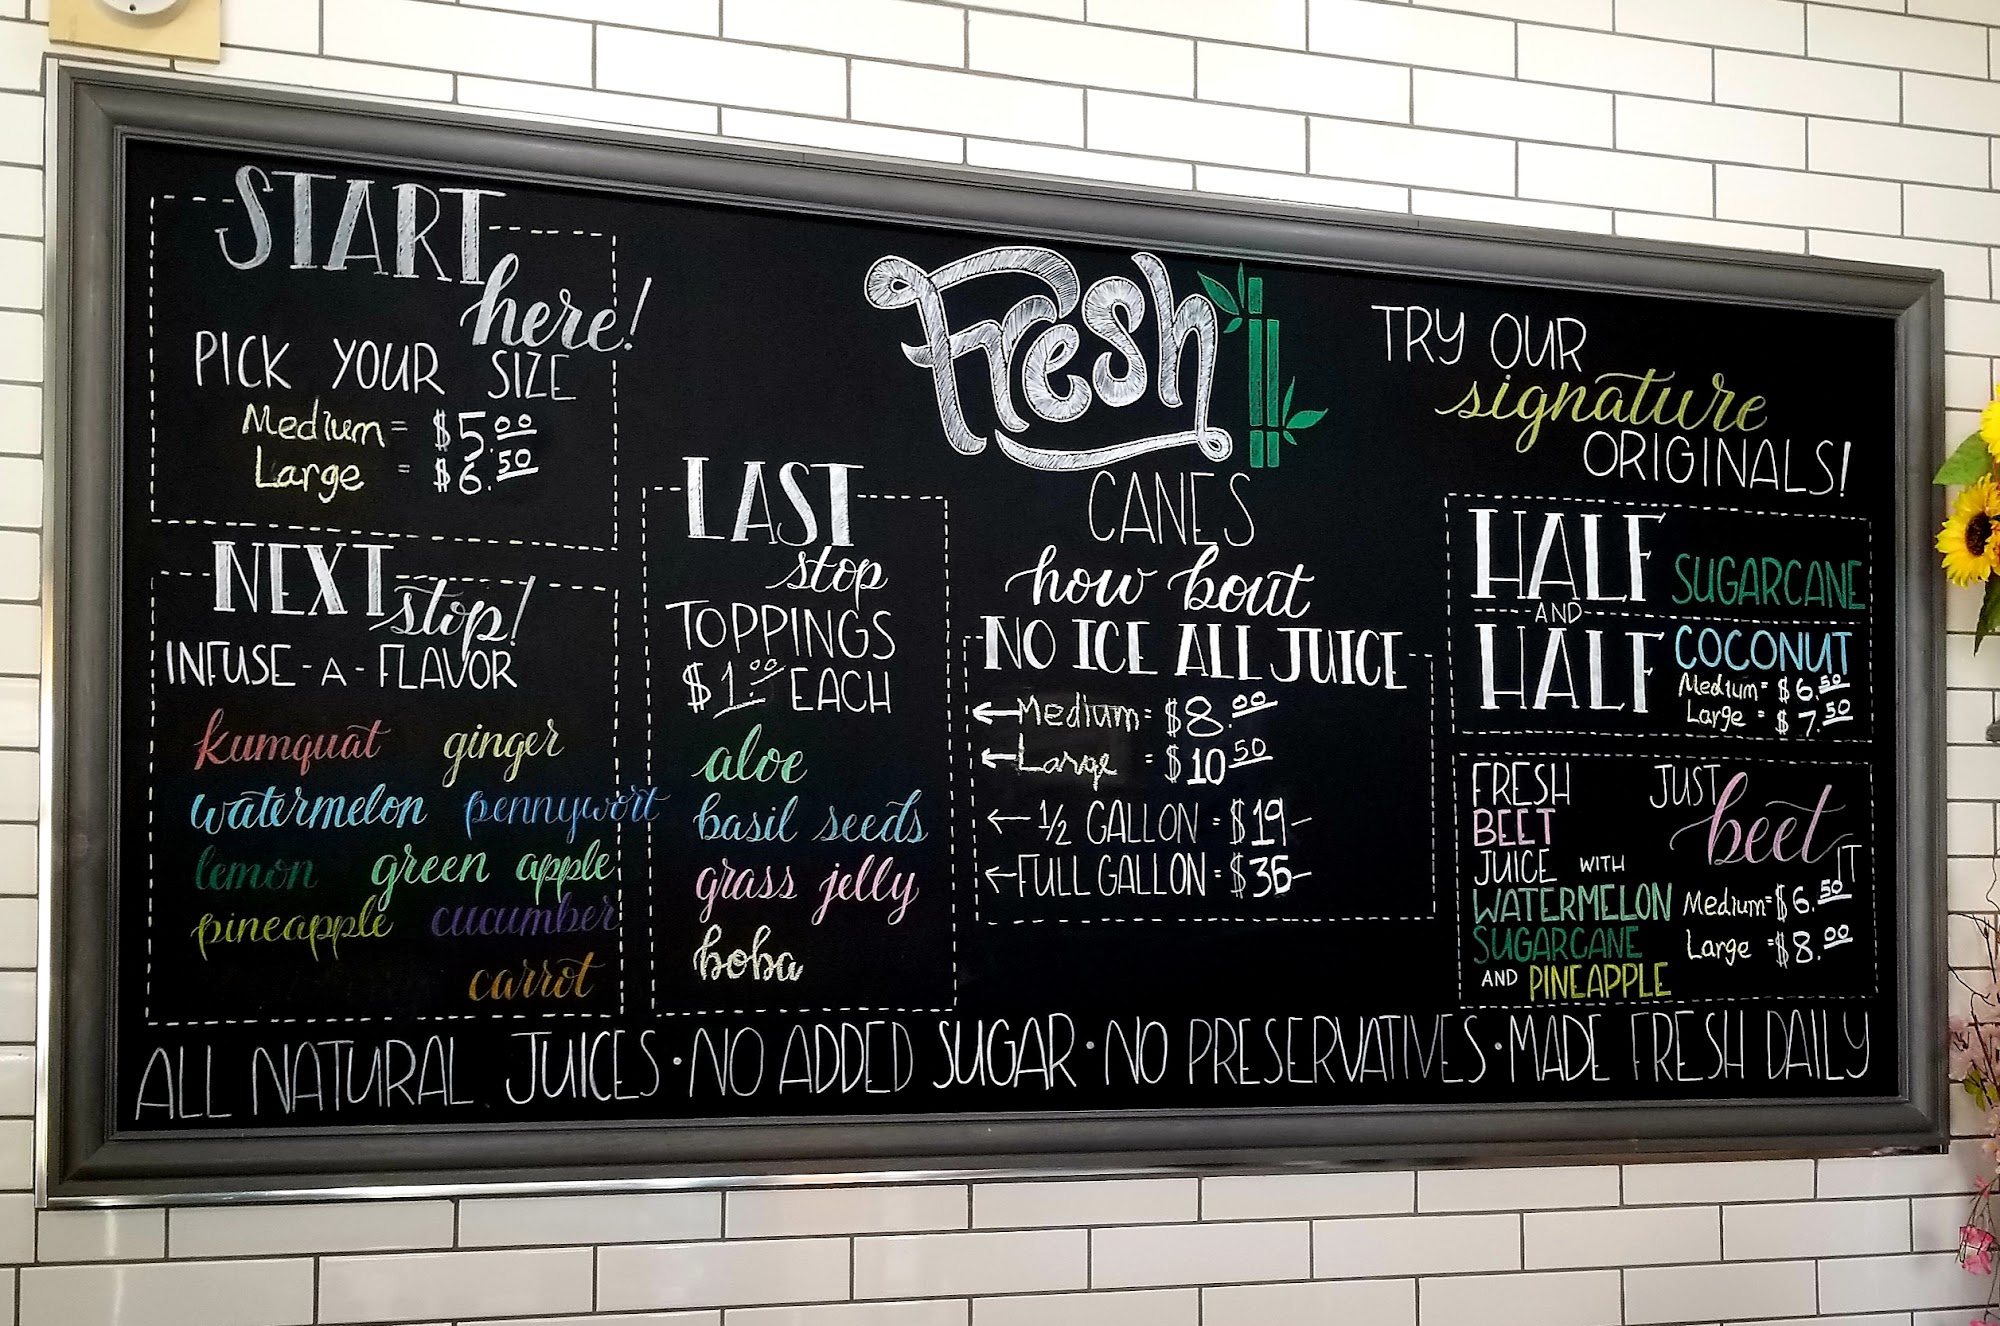 START
here!
PICK YOUR SIZE
Medium = $5.00
Large = $6.50
NEXT
stop!
INFUSE-A-FLAVOR
kumquat ginger
watermelon pennywort
lemon green apple
pineapple cucumber
carrot
LAST
stop
TOPPINGS
$1.00 EACH
aloe
basil seeds
grass jelly
boba
Fresh
CANES
how bout
NO ICE ALL JUICE
←Medium = $8.00
←Large = $10.50
←1/2 GALLON = $19-
←FULL GALLON = $36-
TRY OUR
signature
ORIGINALS!
HALF SUGARCANE
AND
HALF COCONUT
Medium = $6.50
Large = $7.50
FRESH
BEET
JUICE WITH
WATERMELON
SUGARCANE
AND PINEAPPLE
JUST
beet
IT
Medium = $6.50
Large = $8.00
ALL NATURAL JUICES · NO ADDED SUGAR · NO PRESERVATIVES · MADE FRESH DAILY